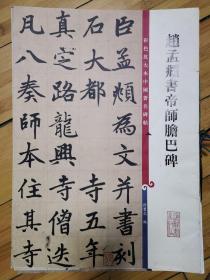 趙孟頫書帝師膽巴碑
彩色放大本中國著名碑帖
孫寶文 編
臣孟頫為文并書刻
石大都寺五年
真定路龍興寺僧迭
凡八奏師本住其寺